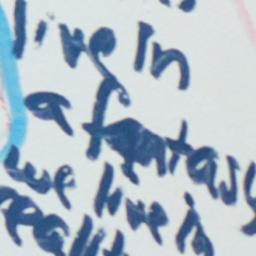 live in
a fantasy
we live in
reality